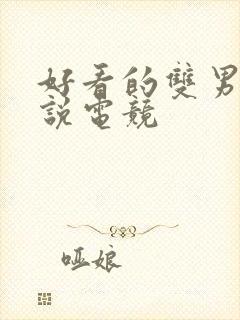 好看的雙男
說電競
哑娘